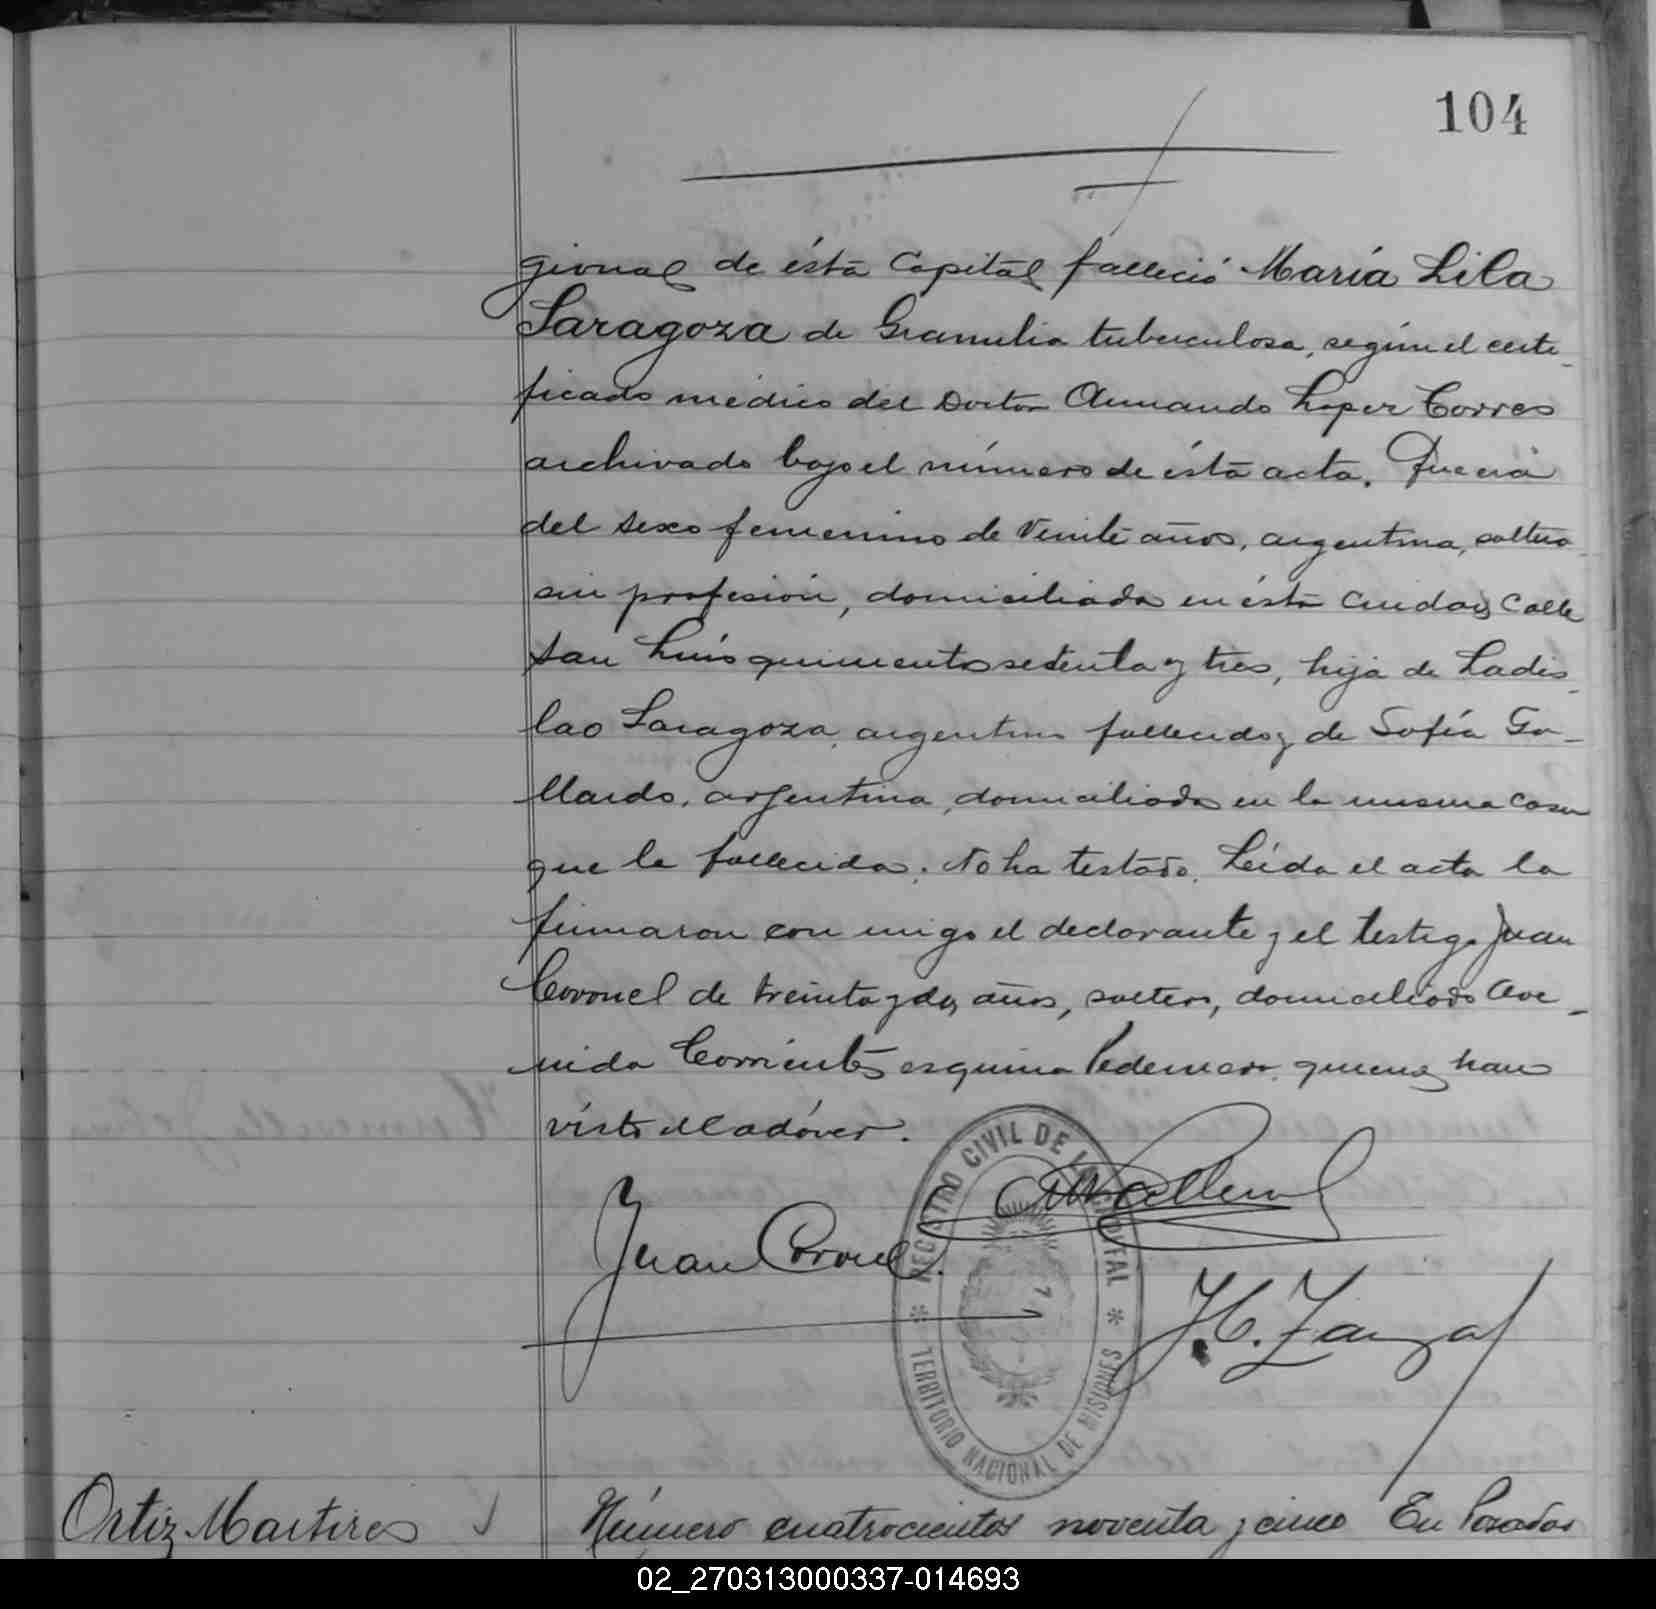 104
gional de ésta Capital falleció María Lila
Saragoza de Granulia tuberculosa, según el certi
ficado médico del Doctor Armando Lopez Torres
archivado bajo el número de ésta acta. Que era
del sexo femenino de veinte años, argentina, soltera
sin profesión, domiciliada en ésta ciudad calle
San Luis quinientos setenta y tres, hija de Ladis
lao Saragoza, argentino fallecido y de Sofía Ga-
llardo, argentina, domiciliada en la misma casa
que la fallecida. No ha testado. Leída el acta la
firmaron con migo el declarante y el testigo Juan
Coronel de treinta y dos años, soltero, domiciliado Ave-
nida Corrientes esquina Pedernera quienes han
visto el cadáver.
Juan Coronel
REGISTRO CIVIL DE LA CAPITAL
TERRITORIO NACIONAL DE MISIONES
Ortiz Martires
Número cuatrocientos noventa y cinco En Posadas
02_270313000337-014693